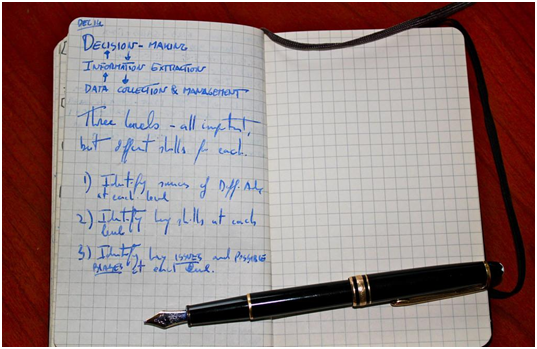 DECISION-MAKING
INFORMATION EXTRACTION
DATA COLLECTION & MANAGEMENT
Three levels - all important,
but different skills for each.
1) Identify sources of Diff.
at each level
2) Identify key skills at each
level
3) Identify key ISSUES and POSSIBLE
at each level.